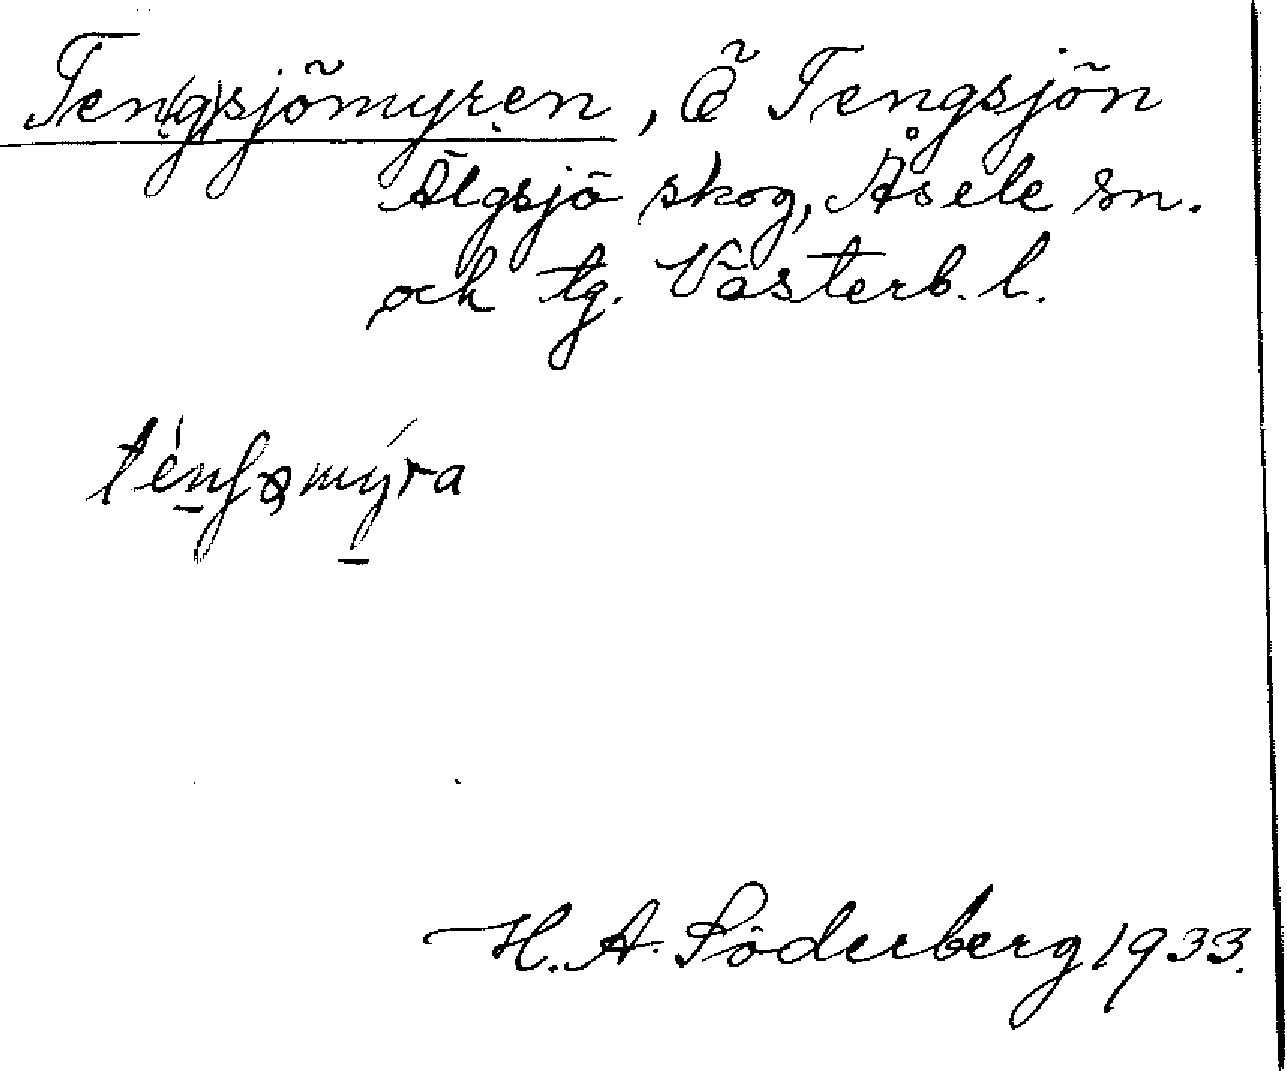 Ten(g)sjömyren, Ö Tengsjön
Älgsjö skog, Åsele sn.
och tg. Västerb. l.
H. A. Söderberg 1933.